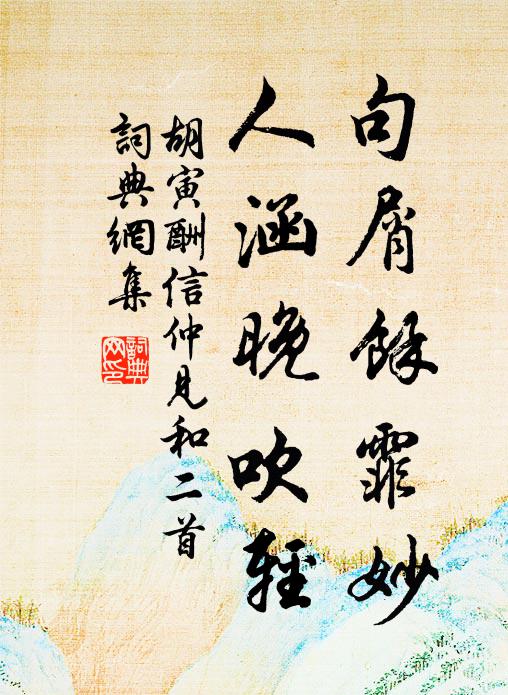 句屑餘霏妙
人涵晚吹輕
胡寅酬信仲見和二首
詞典網集
詞典
网印